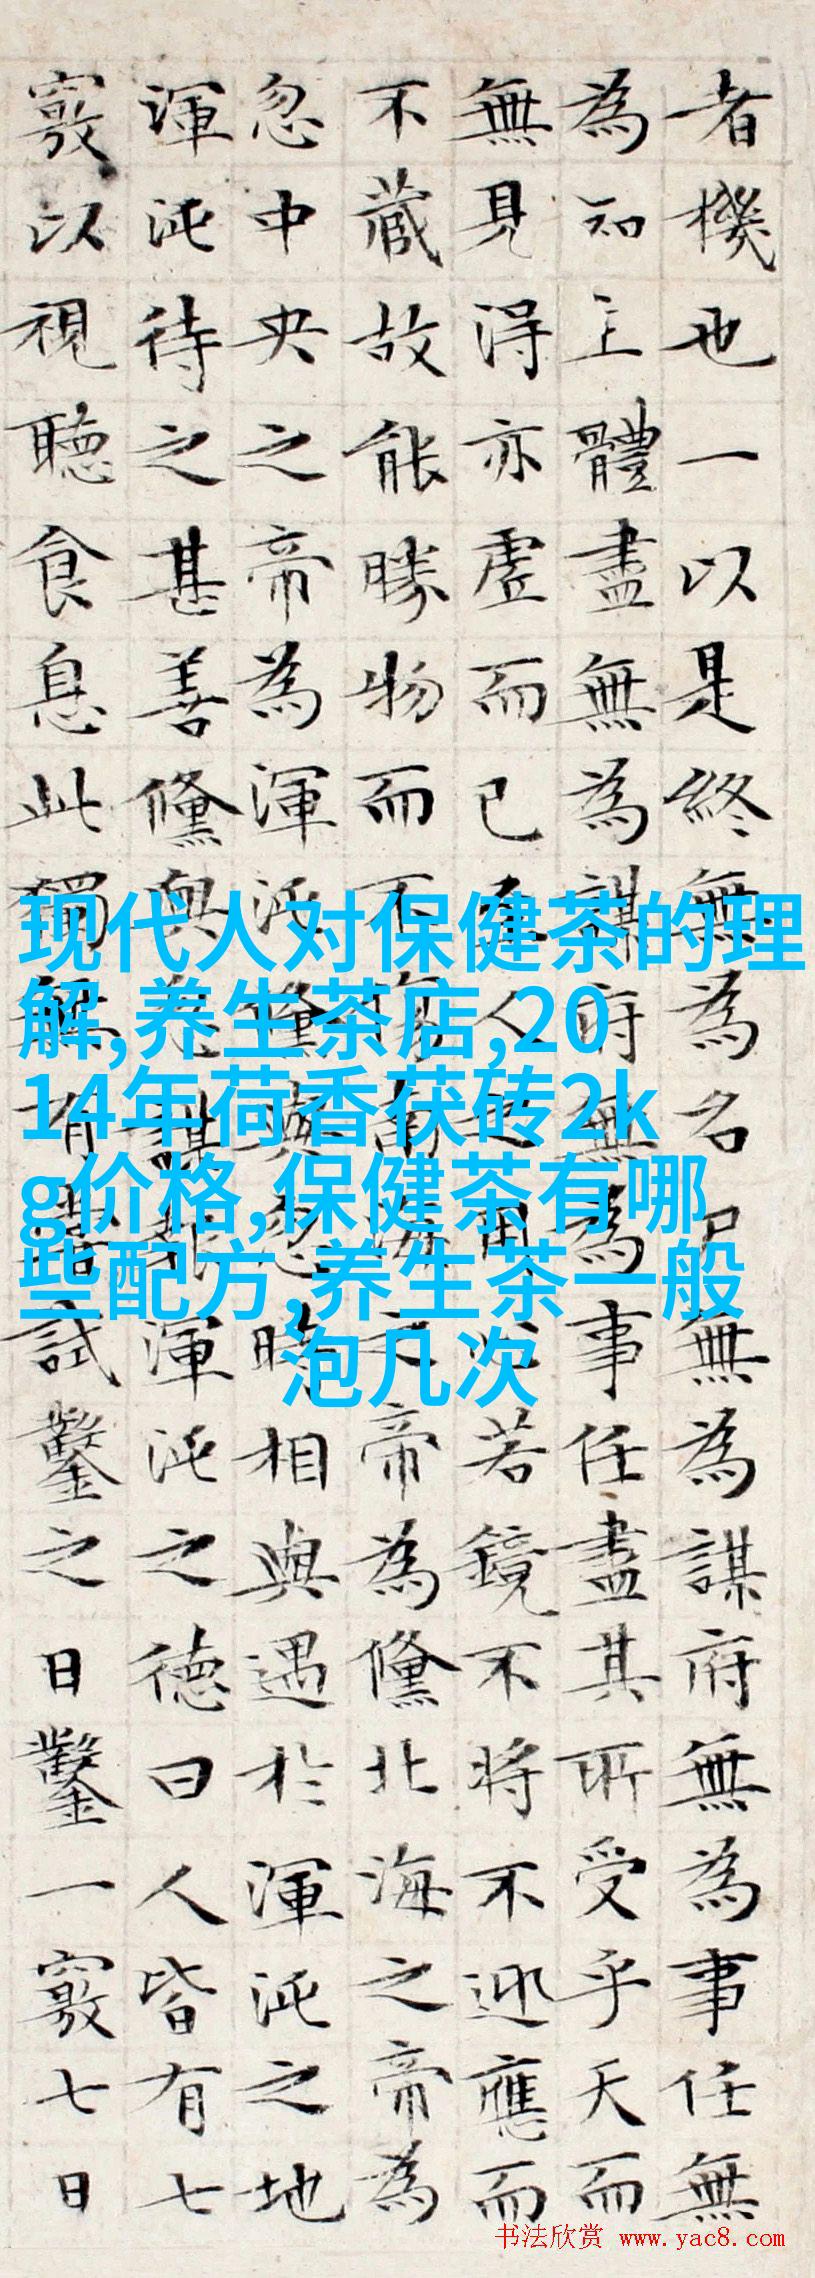 者機也一以是終無為名尸無為謀府無為事任無
為知主體盡無為謀府無為事任盡其所受乎天而
無見得亦虛而已至人之用心若鏡不將不迎應而
不藏故能勝物而不傷南海之帝為儵北海之帝為
忽中央之帝為渾沌儵與忽時相與遇於渾沌之地
渾沌待之甚善儵與忽謀報渾沌之德曰人皆有七
竅以視聽食息此獨無有嘗試鑿之日鑿一竅七日
现代人对保健茶的理
解,养生茶店,20
14年荷香茯砖2k
g价格,保健茶有哪
些配方,养生茶一般
泡几次
书法欣赏 www.yac8.com